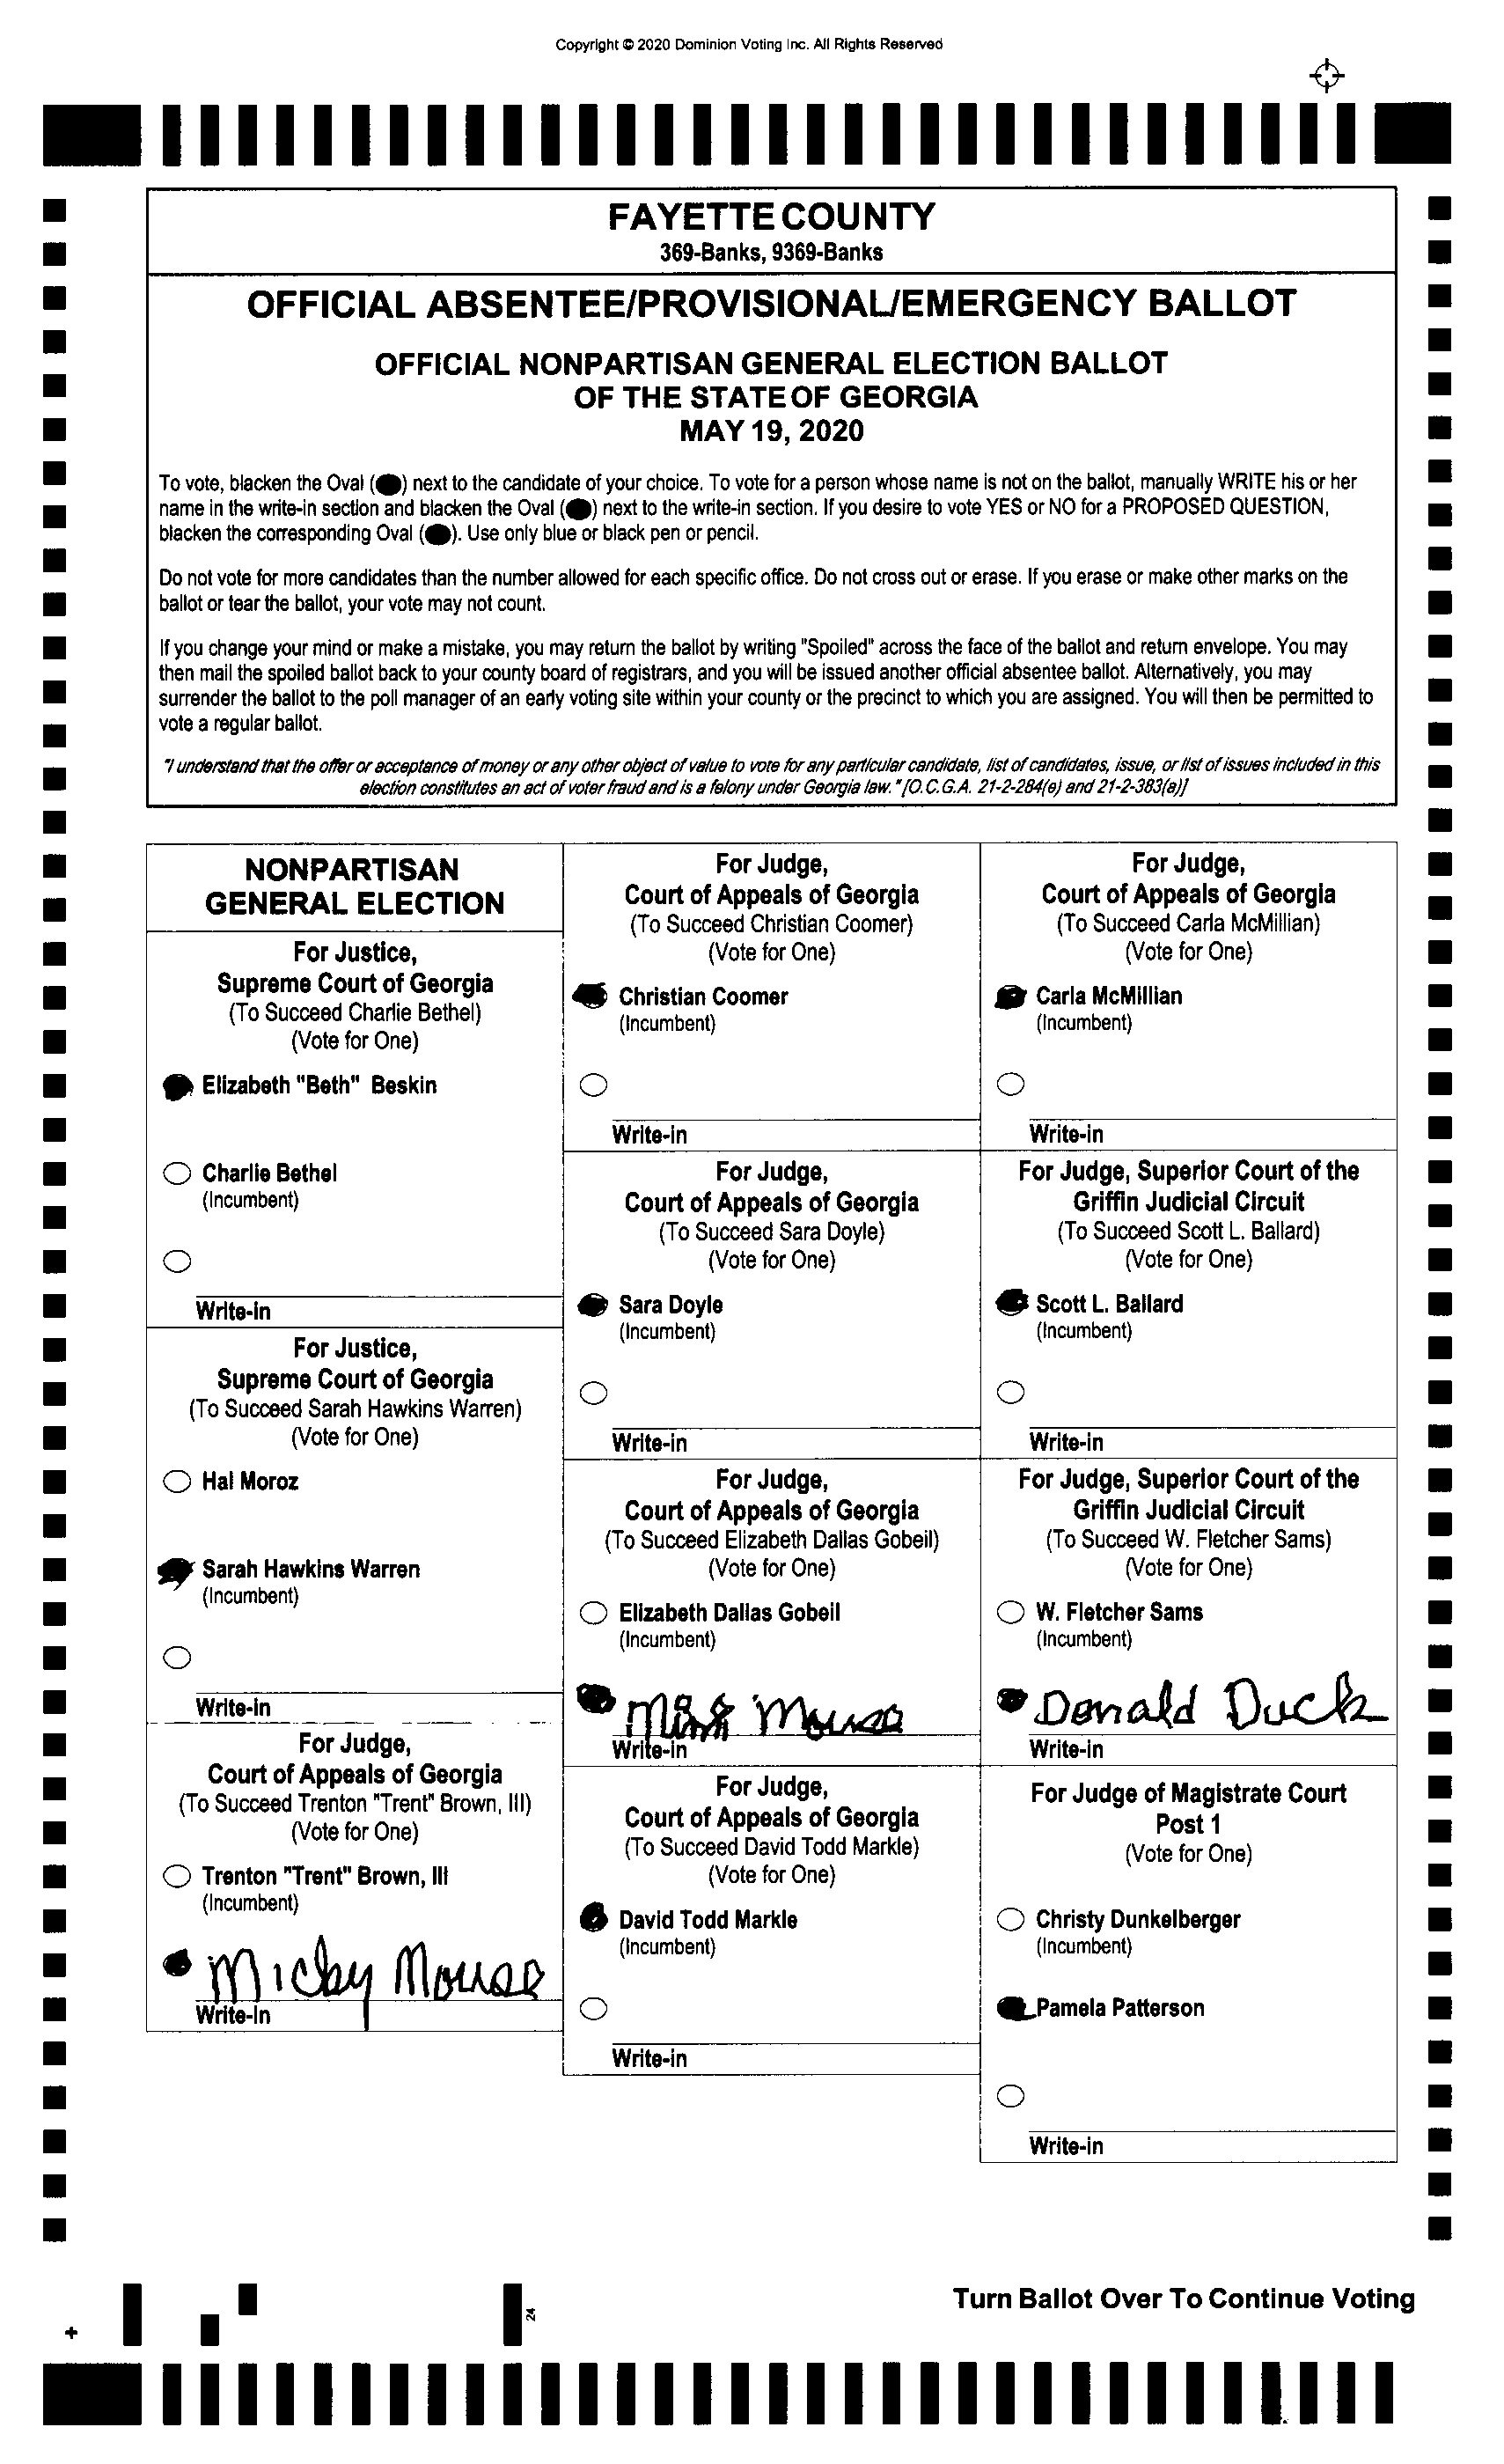 Copyright © 2020 Dominion Voting Inc. All Rights Reserved
FAYETTE COUNTY
369-Banks, 9369-Banks
OFFICIAL ABSENTEE/PROVISIONAL/EMERGENCY BALLOT
OFFICIAL NONPARTISAN GENERAL ELECTION BALLOT
OF THE STATE OF GEORGIA
MAY 19, 2020
To vote, blacken the Oval (⬬) next to the candidate of your choice. To vote for a person whose name is not on the ballot, manually WRITE his or her
name in the write-in section and blacken the Oval (⬬) next to the write-in section. If you desire to vote YES or NO for a PROPOSED QUESTION,
blacken the corresponding Oval (⬬). Use only blue or black pen or pencil.
Do not vote for more candidates than the number allowed for each specific office. Do not cross out or erase. If you erase or make other marks on the
ballot or tear the ballot, your vote may not count.
If you change your mind or make a mistake, you may return the ballot by writing "Spoiled" across the face of the ballot and return envelope. You may
then mail the spoiled ballot back to your county board of registrars, and you will be issued another official absentee ballot. Alternatively, you may
surrender the ballot to the poll manager of an early voting site within your county or the precinct to which you are assigned. You will then be permitted to
vote a regular ballot.
"I understand that the offer or acceptance of money or any other object of value to vote for any particular candidate, list of candidates, issue, or list of issues included in this
election constitutes an act of voter fraud and is a felony under Georgia law. "[O.C.G.A. 21-2-284(e) and 21-2-383(a)]
NONPARTISAN
GENERAL ELECTION
For Justice,
Supreme Court of Georgia
(To Succeed Charlie Bethel)
(Vote for One)
Elizabeth "Beth" Beskin
Charlie Bethel
(Incumbent)
Write-in
For Justice,
Supreme Court of Georgia
(To Succeed Sarah Hawkins Warren)
(Vote for One)
Hal Moroz
Sarah Hawkins Warren
(Incumbent)
Write-in
For Judge,
Court of Appeals of Georgia
(To Succeed Trenton "Trent" Brown, III)
(Vote for One)
Trenton "Trent" Brown, III
(Incumbent)
Micky Mouse
Write-in
For Judge,
Court of Appeals of Georgia
(To Succeed Christian Coomer)
(Vote for One)
Christian Coomer
(Incumbent)
Write-in
For Judge,
Court of Appeals of Georgia
(To Succeed Sara Doyle)
(Vote for One)
Sara Doyle
(Incumbent)
Write-in
For Judge,
Court of Appeals of Georgia
(To Succeed Elizabeth Dallas Gobeil)
(Vote for One)
Elizabeth Dallas Gobeil
(Incumbent)
Mouse
Write-in
For Judge,
Court of Appeals of Georgia
(To Succeed David Todd Markle)
(Vote for One)
David Todd Markle
(Incumbent)
Write-in
For Judge,
Court of Appeals of Georgia
(To Succeed Carla McMillian)
(Vote for One)
Carla McMillian
(Incumbent)
Write-in
For Judge, Superior Court of the
Griffin Judicial Circuit
(To Succeed Scott L. Ballard)
(Vote for One)
Scott L. Ballard
(Incumbent)
Write-in
For Judge, Superior Court of the
Griffin Judicial Circuit
(To Succeed W. Fletcher Sams)
(Vote for One)
W. Fletcher Sams
(Incumbent)
Donald Duck
Write-in
For Judge of Magistrate Court
Post 1
(Vote for One)
Christy Dunkelberger
(Incumbent)
Pamela Patterson
Write-in
24
Turn Ballot Over To Continue Voting